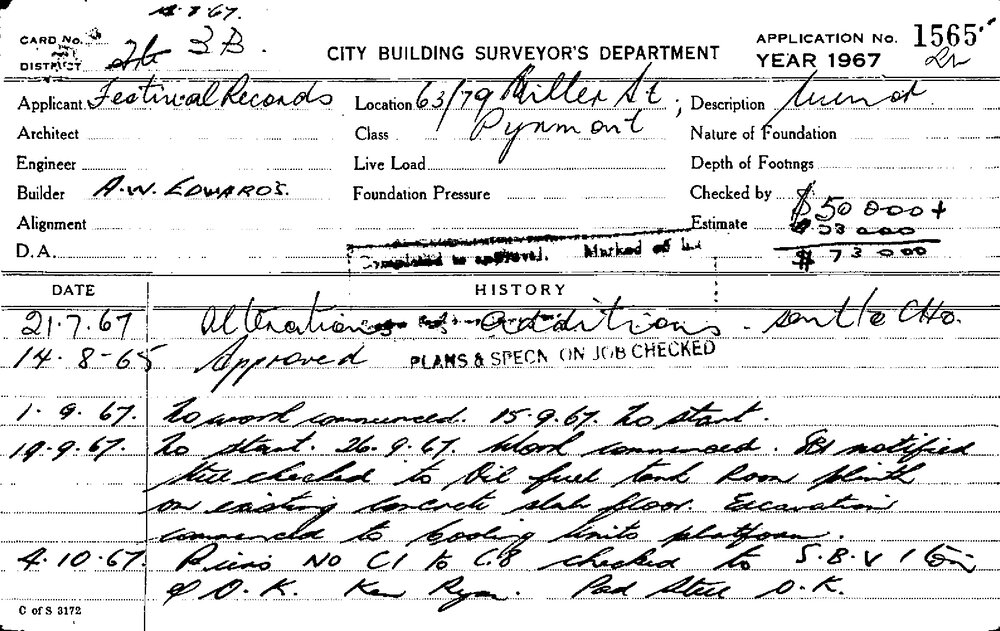 11.7.67.
CARD No. 3B.
DISTRICT
CITY BUILDING SURVEYOR'S DEPARTMENT
APPLICATION No. 1565
YEAR 1967
Applicant Festival Records Location 63/79 Miller St, Description Minor
Architect Class Pyrmont Nature of Foundation
Engineer Live Load Depth of Footings
Builder A.W. EDWARDS. Foundation Pressure Checked by
Alignment Estimate $50 000 +
D.A. Completed to approval. Marked off $ 73 000
DATE HISTORY
21.7.67 Alterations additions. sent to CHO.
14.8-65 Approved PLANS & SPECN ON JOB CHECKED
1.9.67. No work commenced. 15.9.67. No start.
19.9.67. No start. 26.9.67. Work commenced. notified
Steel checked to Oil fuel tank Room plinth
on existing concrete slab floor. Excavation
commenced to Cooling Units platform.
4.10.67. Piers No C1 to C8 checked to S.B.V
& O.K. Ken Ryan. Pad Steel O.K.
C of S 3172